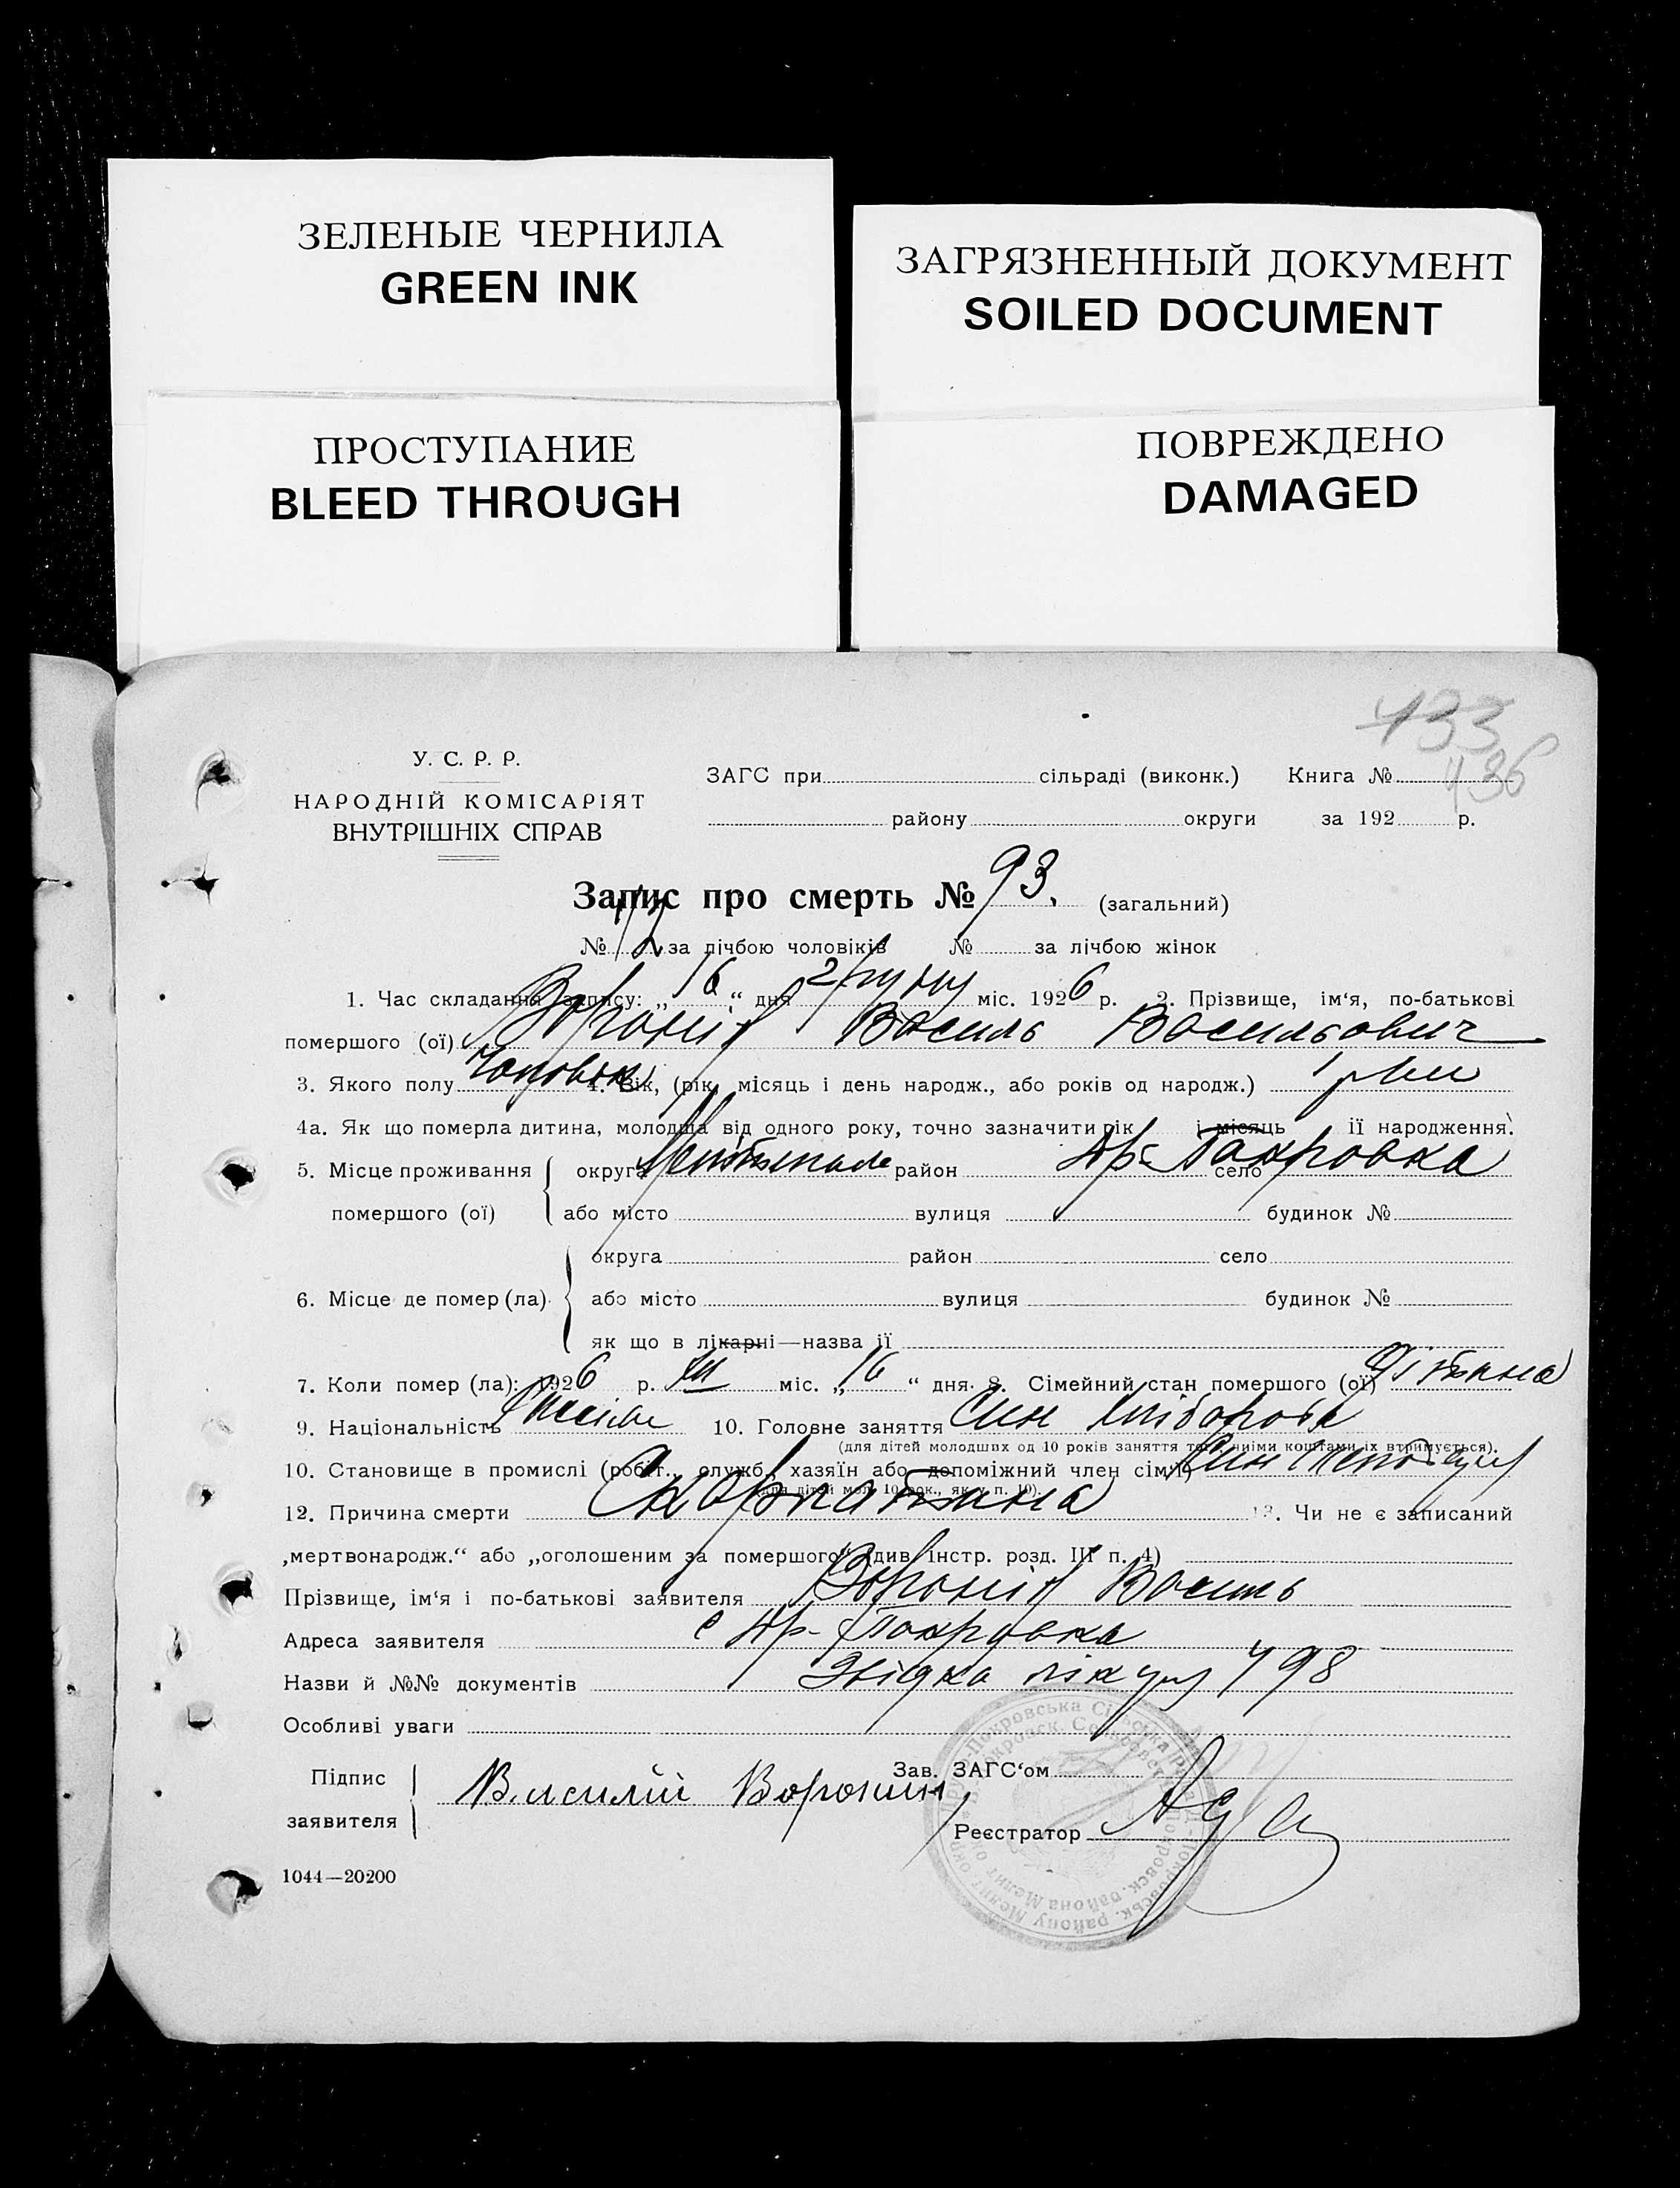 ЗЕЛЕНЫЕ ЧЕРНИЛА
GREEN INK
ЗАГРЯЗНЕННЫЙ ДОКУМЕНТ
SOILED DOCUMENT
ПРОСТУПАНИЕ
BLEED THROUGH
ПОВРЕЖДЕНО
DAMAGED
433
436
У. С. Р. Р.
НАРОДНІЙ КОМІСАРІЯТ
ВНУТРІШНІХ СПРАВ
ЗАГС при сільраді (виконк.) Книга №
району округи за 192 р.
Запис про смерть № 93. (загальний)
№ за лічбою чоловіків № за лічбою жінок
1. Час складання запису: „16“ дня грудну міс. 1926 р. 2. Прізвище, ім'я, по-батькові
помершого (ої) Воронін Василь Васильович
3. Якого полу Чоловік 4. Вік, (рік, місяць і день народж., або років од народж.) 1 рік
4а. Як що померла дитина, молодша від одного року, точно зазначити рік і місяць ії народження.
5. Місце проживання округа район село Др-Покровка
помершого (ої) або місто вулиця будинок №
округа район село
6. Місце де помер (ла) або місто вулиця будинок №
як що в лікарні—назва ії
7. Коли помер (ла): 1926 р. XII міс. „16“ дня. 8. Сімейний стан помершого (ої) Дітина
9. Національність 10. Головне заняття Син хлібороба
(для дітей молодших од 10 років заняття того, чиїми коштами їх втримується).
10. Становище в промислі (робіт., служб., хазяїн або допоміжний член сім'ї) Син
(для дітей мол. 10 рок., як у п. 10).
12. Причина смерти Скарлатина 13. Чи не є записаний
„мертвонародж.“ або „оголошеним за помершого“ (див. інстр. розд. III п. 4)
Прізвище, ім'я і по-батькові заявителя Воронін Василь
Адреса заявителя с Др-Покровка
Назви й №№ документів Звідка лікаря 498
Особливі уваги
Підпис
заявителя
Василий Воронин
Зав. ЗАГС'ом
Реєстратор
1044—20200